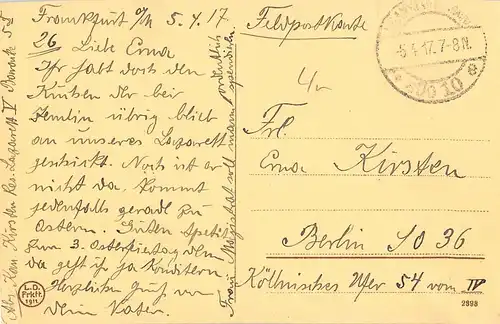 Frankfurt a/M 5.4.17
26 Liebe Erna
Ihr habt doch den
Kuchen der bei
Zemlin übrig blieb
an unseres Lazarett
geschickt. Noch ist er
nicht da. Kommt
jedenfalls gerade zu
Ostern. Guten Apetit
zum 3. Osterfeiertag denn
da geht ihr ja konditern.
Herzlichen Gruß von
dein Vater.
Frau Magistrat soll man ordentlich
spendieren
Abs. Kan. Kirsten Res. Lazarett V Baracke 52
Feldpostkarte
5.4.17.7-8N.
Frl.
Erna Kirsten
Berlin SO 36
Köllnisches Ufer 54 vorn IV
L.D.
Frkft.
1911
2898